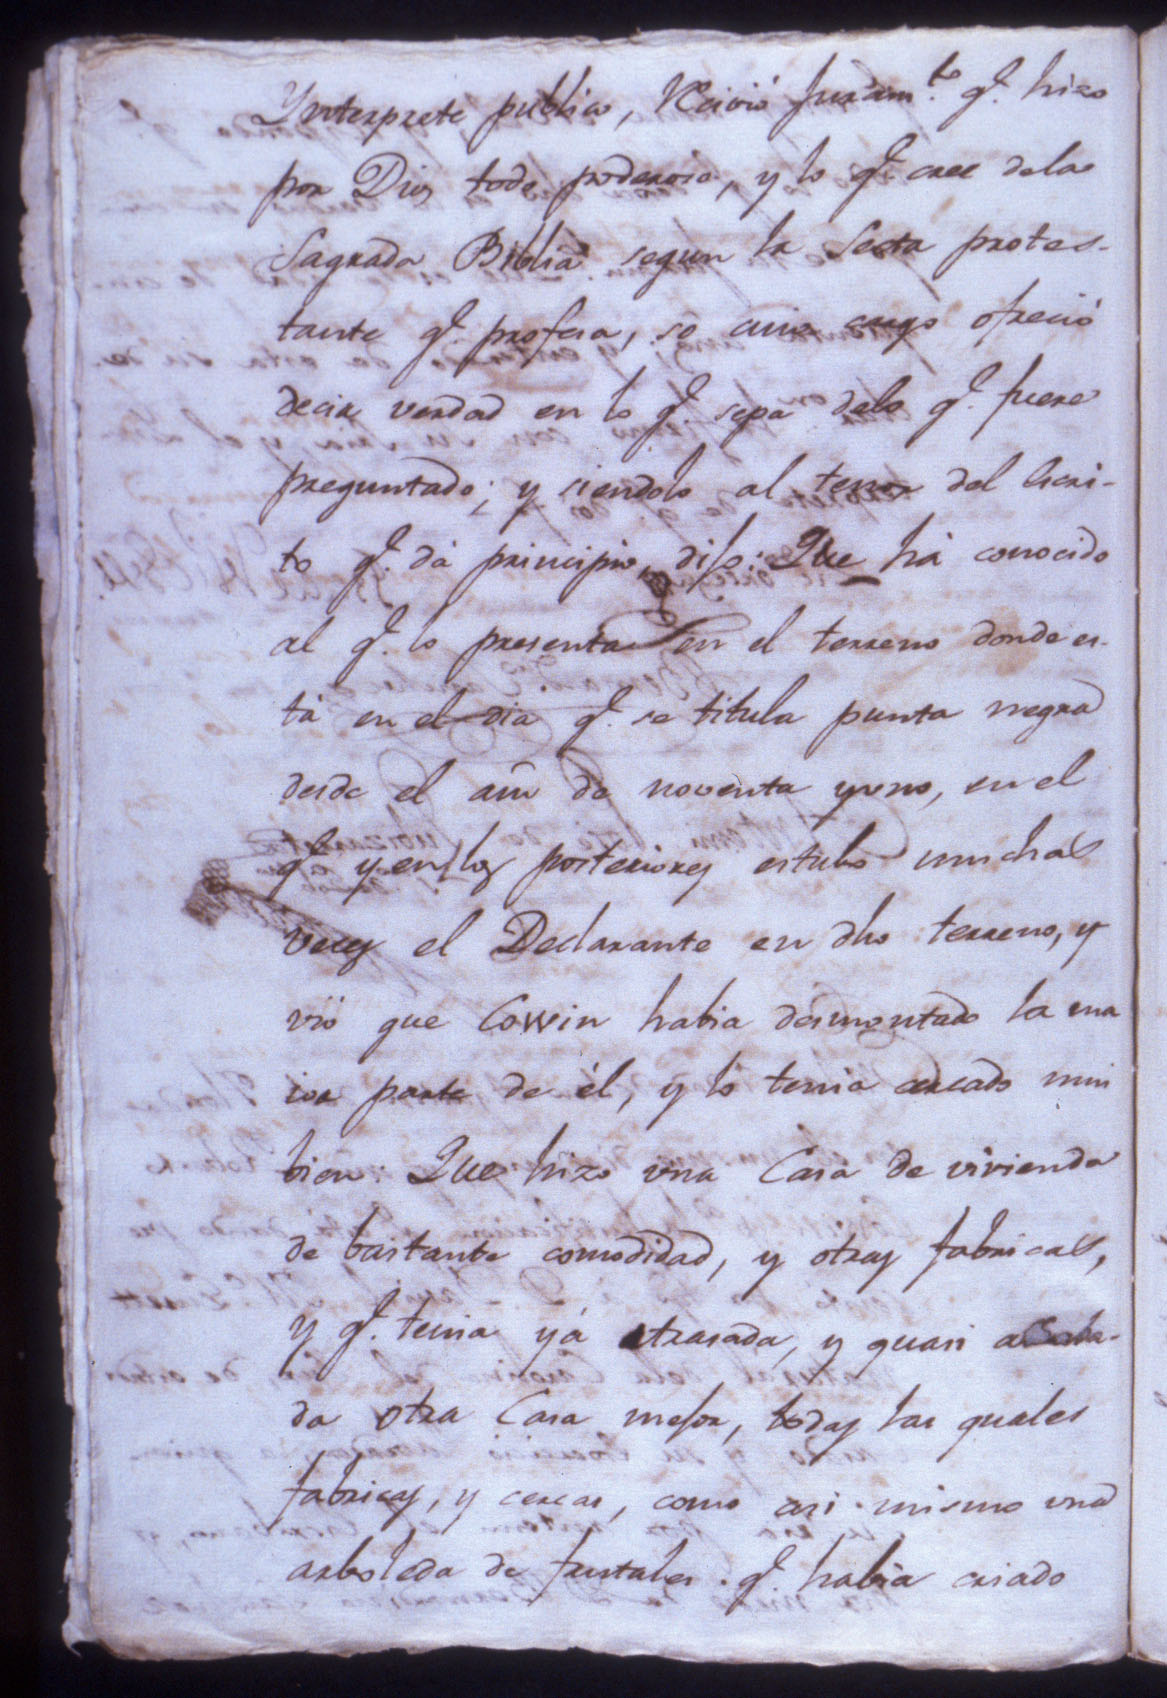 Ynterprete publico, Recivió juram.to q.e hizo
por Dios todo poderoso, y lo q.e cree dela
Sagrada Biblia segun la Secta protes-
tante q.e profesa, so cuio cargo ofreció
decir verdad en lo q.e sepa delo q.e fuere
preguntado; y siendolo al tenor del Escri-
to q.e dá principio, dijo: Que há conocido
al q.e lo presenta en el terreno donde es-
tá en el dia q.e se titula punta negra
desde el año de noventa y uno, en el
q.e y en los posteriores estubo muchas
veces el Declarante en dho terreno, y
vió que Cowin habia desmontado la ma
ior parte de él, y lo tenia cercado mui
bien: Que hizo vna Casa de vivienda
de bastante comodidad, y otras fabricas,
y q.e tenia yá trasada, y quasi acaba-
da otra Casa mejor, todas las quales
fabricas, y cercas, como asi mismo vna
arboleda de frutales q.e habia criado